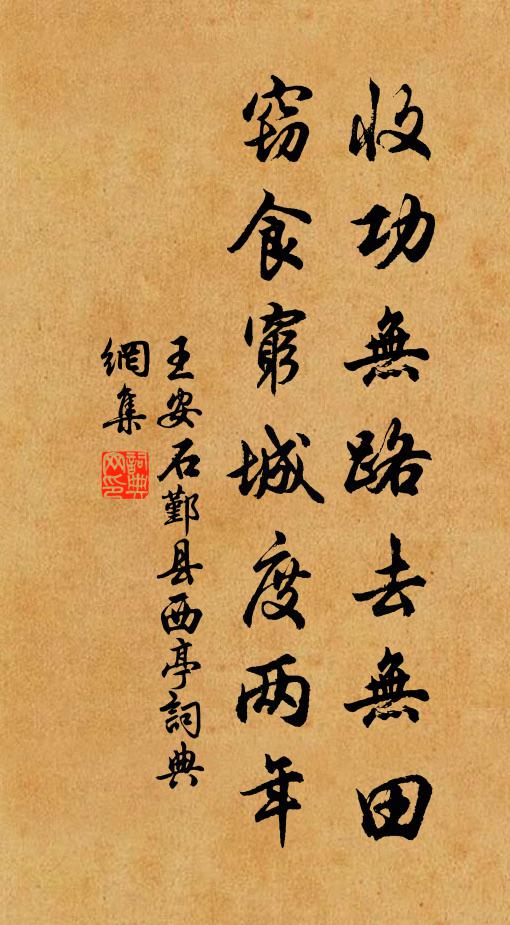 收功無路去無田
窃食窮城度两年
王安石鄞县西亭詞典
網集
詞典
网印